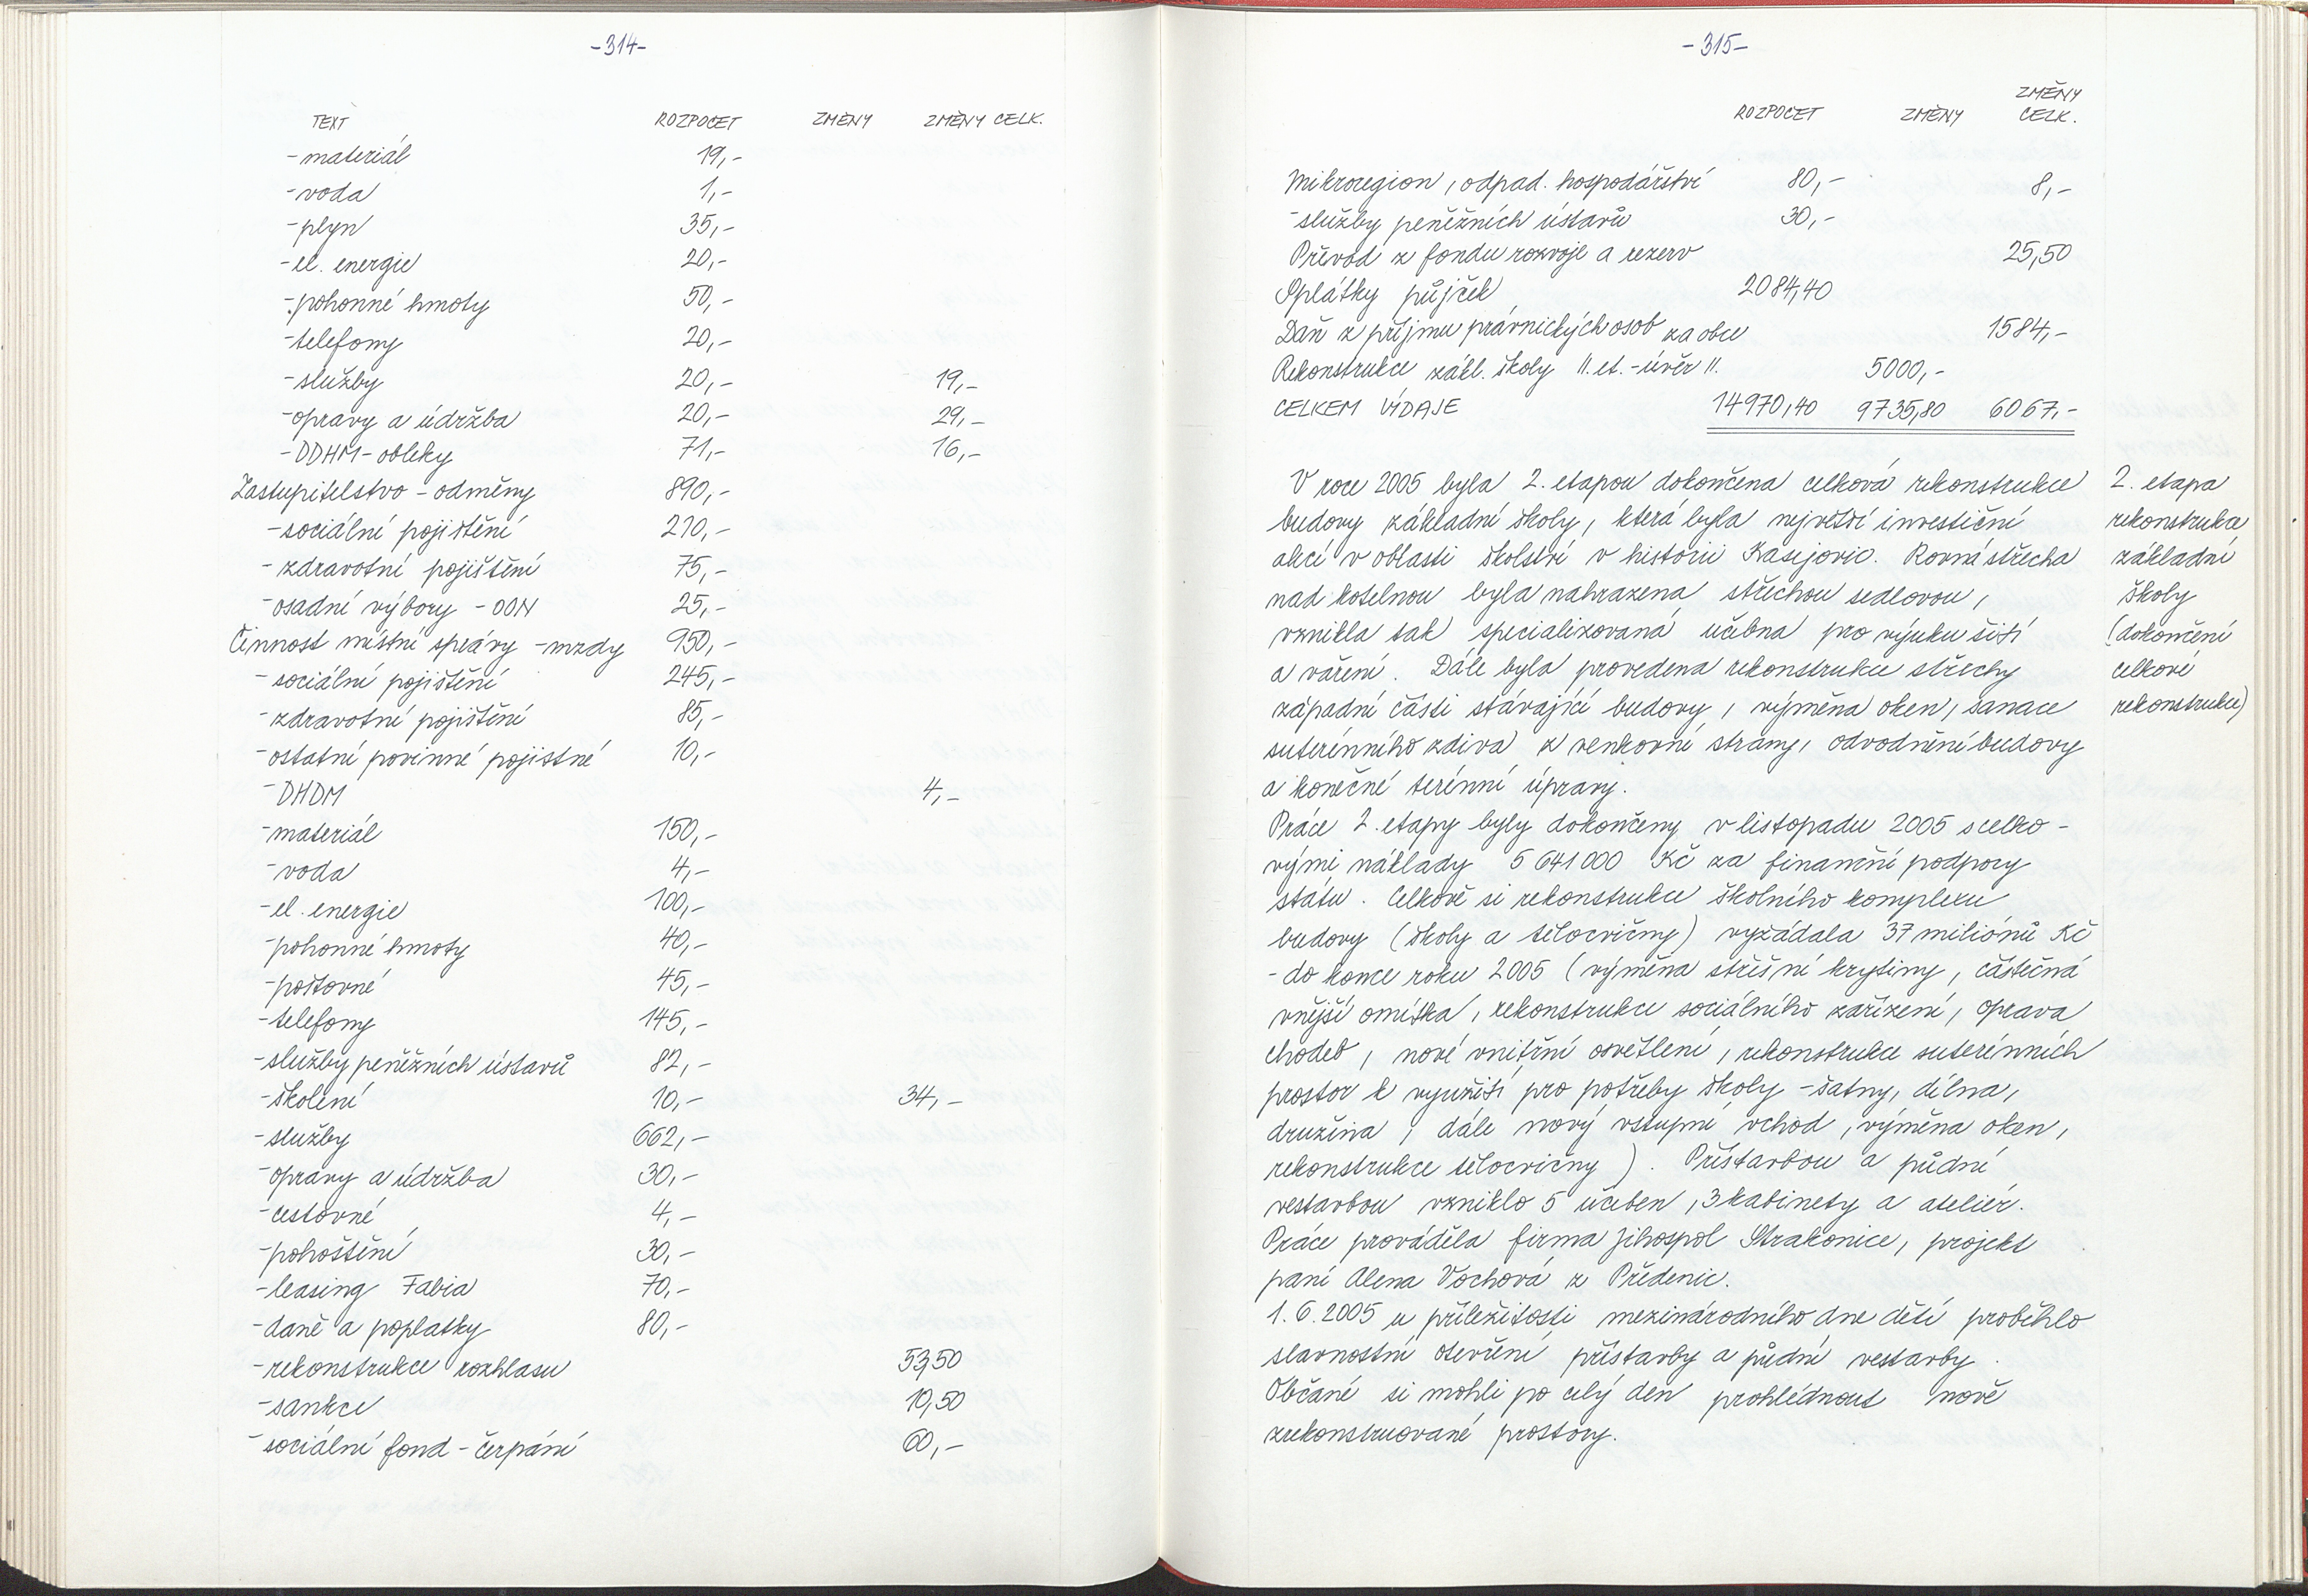 -314-
TEXT ROZPOČET ZMĚNY ZMĚNY CELK.
-materiál 19,-
-voda 1,-
-plyn 35,-
-el. energie 20,-
-pohonné hmoty 50,-
-telefony 20,-
-služby 20,- 19,-
-opravy a údržba 20,- 29,-
-DDHM-obleky 71,- 16,-
Zastupitelstvo - odměny 890,-
-sociální pojištění 210,-
-zdravotní pojištění 75,-
-osadní výbory - OON 25,-
Činnost místní správy -mzdy 950,-
-sociální pojištění 245,-
-zdravotní pojištění 85,-
-ostatní povinné pojistné 10,-
-DHDM 4,-
-materiál 150,-
-voda 4,-
-el. energie 100,-
-pohonné hmoty 40,-
-poštovné 45,-
-telefony 145,-
-služby peněžních ústavů 82,-
-školení 10,- 34,-
-služby 662,-
-opravy a údržba 30,-
-cestovné 4,-
-pohoštění 30,-
-leasing Fabia 70,-
-daně a poplatky 80,-
-rekonstrukce rozhlasu 53,50
-sankce 10,50
-sociální fond - čerpání 60,-
-315-
ROZPOČET ZMĚNY ZMĚNY CELK.
Mikroregion, odpad. hospodářství 80,- 8,-
-služby peněžních ústavů 30,-
Převod z fondu rozvoje a rezerv 25,50
Splátky půjček 2084,40
Daň z příjmu právnických osob za obce 1584,-
Rekonstrukce zákl. školy II.et.-úvěr II. 5000,-
CELKEM VÝDAJE 14970,40 9735,80 6067,-
V roce 2005 byla 2. etapou dokončena celková rekonstrukce
budovy základní školy, která byla největší investiční
akcí v oblasti školství v historii Kasejovic. Rovná střecha
nad kotelnou byla nahrazena střechou sedlovou,
vznikla tak specializovaná učebna pro výuku šití
a vaření. Dále byla provedena rekonstrukce střechy
západní části stávající budovy, výměna oken, sanace
suterénního zdiva z venkovní strany, odvodnění budovy
a konečné terénní úpravy.
Práce 2. etapy byly dokončeny v listopadu 2005 s celko-
vými náklady 5 641 000 Kč za finanční podpory
státu. Celkově si rekonstrukce školního komplexu
budovy (školy a tělocvičny) vyžádala 37 miliónů Kč
- do konce roku 2005 (výměna střešní krytiny, částečná
vnější omítka, rekonstrukce sociálního zařízení, oprava
chodeb, nové vnitřní osvětlení, rekonstrukce suterénních
prostor k využití pro potřeby školy -šatny, dílna,
družina, dále nový vstupní vchod, výměna oken,
rekonstrukce tělocvičny). Přístavbou a půdní
vestavbou vzniklo 5 učeben, 3 kabinety a ateliér.
Práce prováděla firma Jihospol Strakonice, projekt
paní Alena Vochová z Předenic.
1. 6. 2005 u příležitosti mezinárodního dne dětí proběhlo
slavnostní otevření přístavby a půdní vestavby.
Občané si mohli po celý den prohlédnout nově
zrekonstruované prostory.
2. etapa
rekonstrukce
základní
školy
(dokončení
celkové
rekonstrukce)